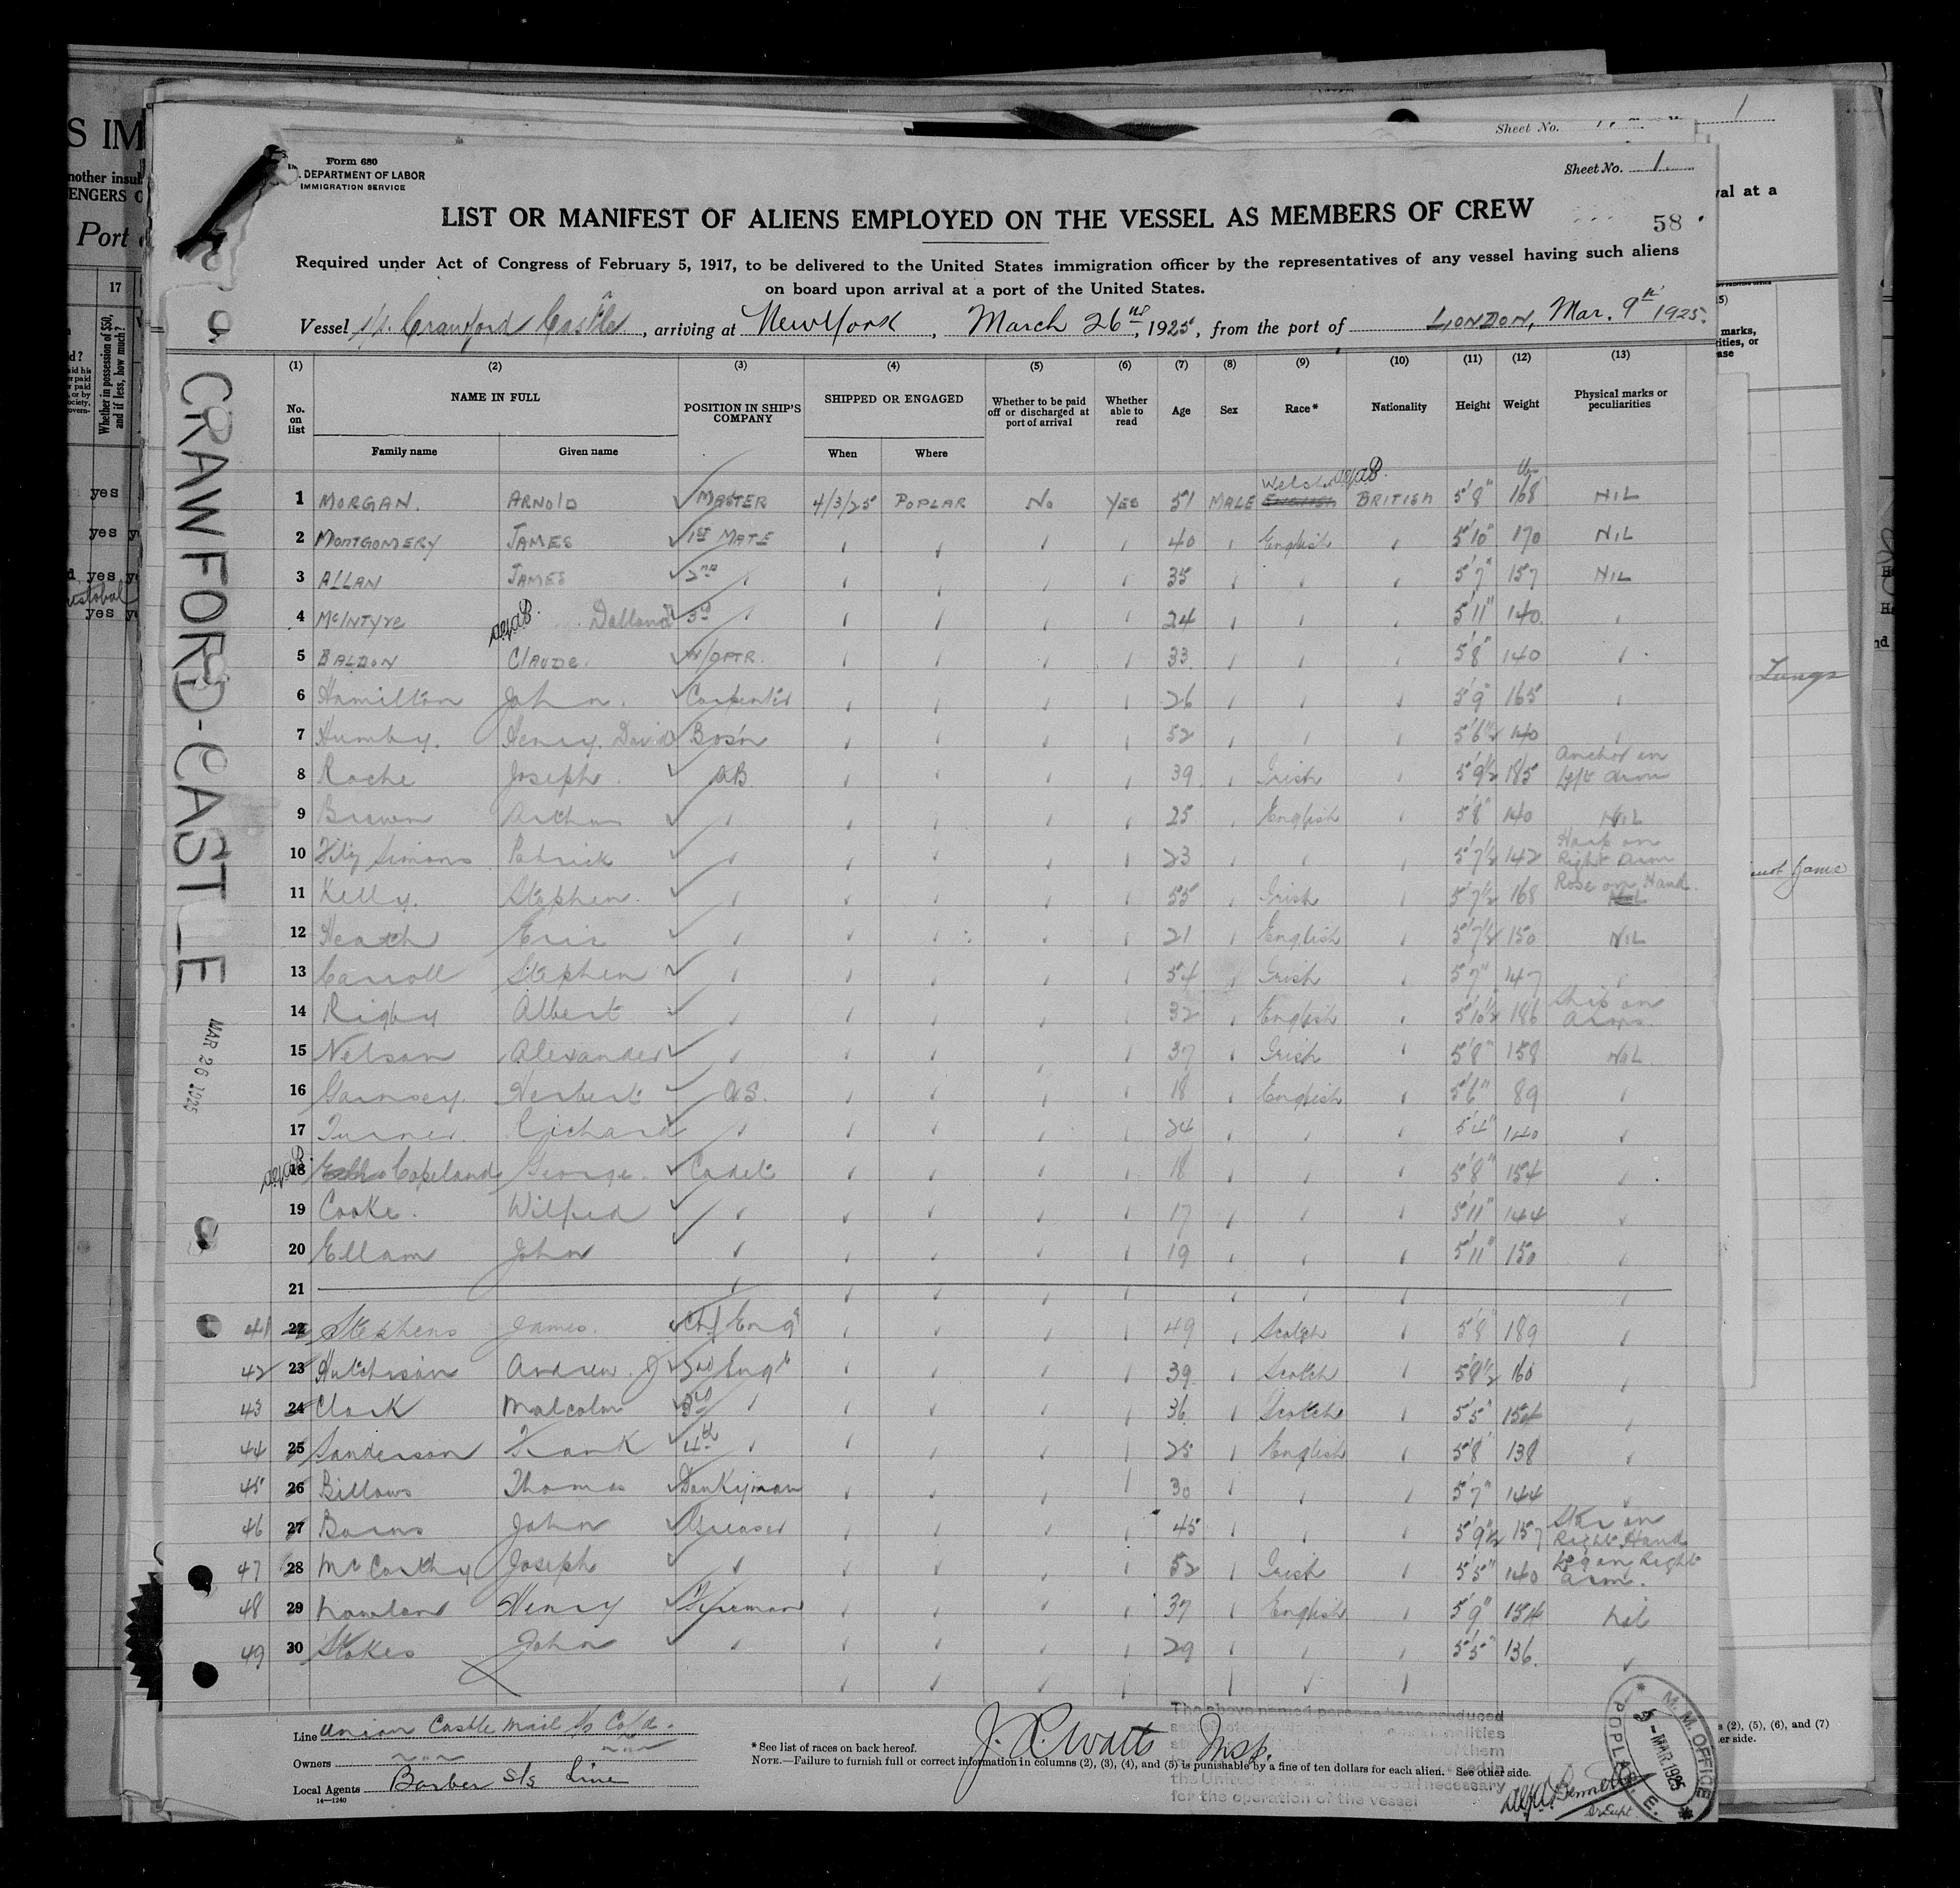 Sheet No.
1
Form 680
. DEPARTMENT OF LABOR
IMMIGRATION SERVICE
Sheet No. 1.
LIST OR MANIFEST OF ALIENS EMPLOYED ON THE VESSEL AS MEMBERS OF CREW
58
Required under Act of Congress of February 5, 1917, to be delivered to the United States immigration officer by the representatives of any vessel having such aliens
on board upon arrival at a port of the United States.
Vessel s/s. Crawford Castle, arriving at New York, March 26, 1925, from the port of LONDON, Mar. 9th 1925.
(1) (2) (3) (4) (5) (6) (7) (8) (9) (10) (11) (12) (13)
No. on list
NAME IN FULL
Family name Given name
POSITION IN SHIP'S COMPANY
SHIPPED OR ENGAGED
When Where
Whether to be paid off or discharged at port of arrival
Whether able to read
Age Sex Race* Nationality Height Weight
Physical marks or peculiarities
1 MORGAN. ARNOLD MASTER 4/3/25 POPLAR NO YES 51 MALE Welsh ENGLISH BRITISH 5'8" 168 NIL
2 MONTGOMERY JAMES 1ST MATE 40 English 5'10" 170 NIL
3 ALLAN JAMES 2nd 35 5'7" 157 NIL
4 McINTYRE Dalland 3d 24 5'11" 140
5 BALDON CLAUDE. W/OPTR. 33 5'8" 140
6 Hamilton John. Carpenter 26 5'9" 165
7 Humby. Henry David Bos'n 52 5'6½ 140
8 Roche Joseph. AB 39 Irish 5'9½ 185 Anchor on Left Arm
9 Brown Arthur 25 English 5'8" 140 NIL
10 Fitz Simons Patrick 23 5'7½ 142 Harp on Right Arm
11 Kelly. Stephen. 55 Irish 5'7½ 168 Rose on Hand. NIL
12 Heath Eric 21 English 5'7½ 150 NIL
13 Carroll Stephen 54 Irish 5'7" 147
14 Rigby Albert 32 English 5'10½ 186 Ship on Arms.
15 Nelson Alexander 37 Irish 5'8" 158 NIL
16 Garnsey. Herbert OS. 18 English 5'6" 89
17 Turner Richard 24 5'4" 140
18 Copeland George. Cadet 18 5'8" 154
19 Cooke. Wilfred 17 5'11" 144
20 Ellam John 19 5'11" 150
21
41 22 Stephens James. Chf Engr 49 Scotch 5'8 189
42 23 Hutchison Andrew. J 2nd Engr 39 Scotch 5'8½ 160
43 24 Clark Malcolm 3rd 36 Scotch 5'5" 154
44 25 Sanderson Frank 4th 25 English 5'8 138
45 26 Billows Thomas Donkeyman 30 5'7" 144
46 27 Barns John Greaser 45 5'9½ 157 on Right Hand
47 28 McCarthy Joseph 52 Irish 5'5" 140 on Right Arm.
48 29 Henry Fireman 37 English 5'9" 154 Nil
49 30 Stokes John 29 5'5" 136.
Line Union Castle Mail S/s Co Ld.
Owners
Local Agents Barber S/s Line
14—1240
* See list of races on back hereof.
NOTE.—Failure to furnish full or correct information in columns (2), (3), (4), and (5) is punishable by a fine of ten dollars for each alien. See other side.
J. C. Watts Insp.
The above named persons have produced
the United
necessary
for the operation of the vessel
M. M. OFFICE
5 - MAR 1925
POPLAR E.
CRAWFORD-CASTLE
MAR 26 1925
S IM
nother insul
ENGERS O
Port
17
Whether in possession of $50, and if less, how much?
yes
yes
yes
yes
val at a
marks,
Lungs
s (2), (5), (6), and (7)
er side.